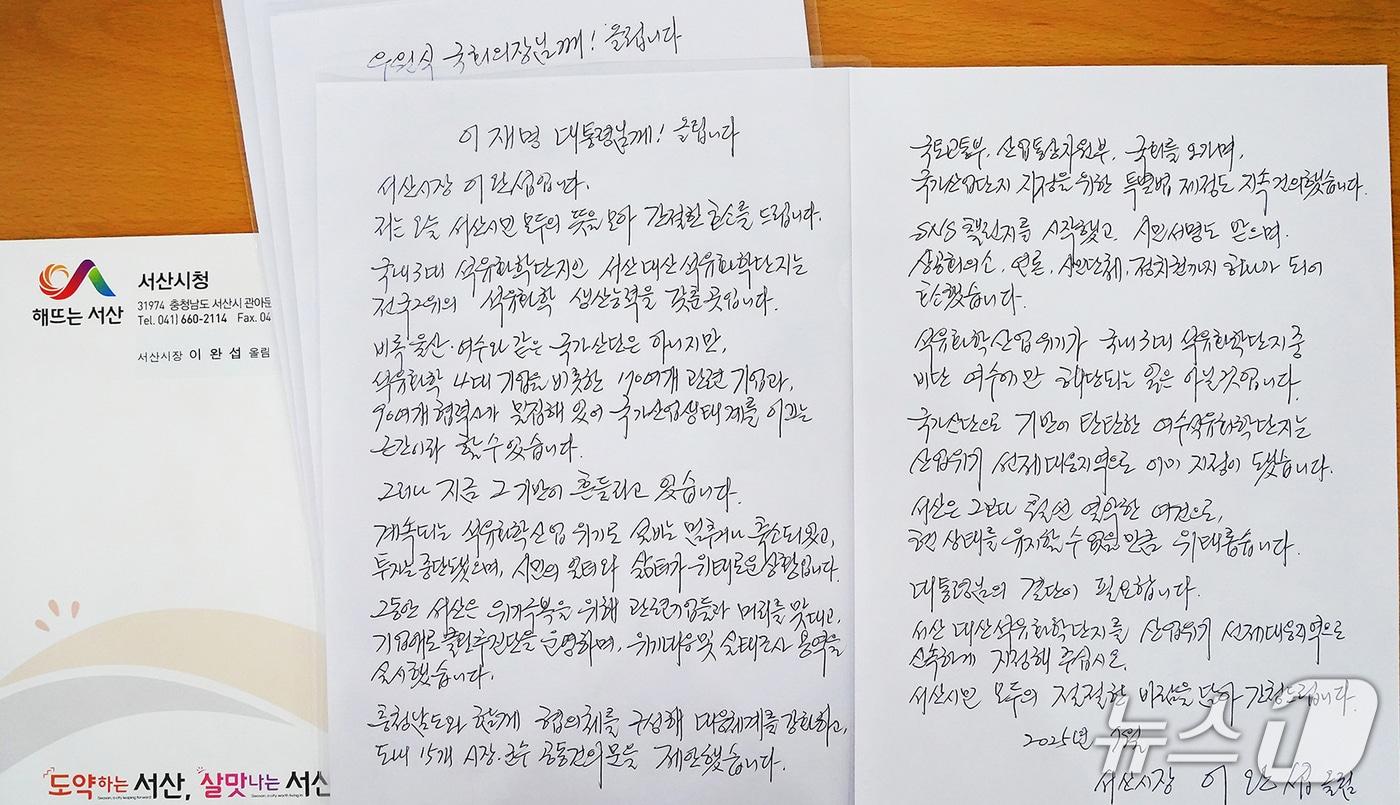 우원식 국회의장님께! 올립니다
이재명 대통령님께! 올립니다
서산시장 이완섭입니다.
저는 오늘 서산시민 모두의 뜻을 모아 간절한 호소를 드립니다.
국내 3대 석유화학단지인 서산 대산석유화학단지는
전국 2위의 석유화학 생산능력을 갖춘 곳입니다.
비록 울산·여수와 같은 국가산단은 아니지만,
석유화학 4대 기업을 비롯한 70여개 관련 기업과,
90여개 협력사가 밀집해 있어 국가산업생태계를 이끄는
근간이라 할 수 있습니다.
그러나 지금 그 기반이 흔들리고 있습니다.
계속되는 석유화학산업 위기로 설비는 멈추거나 축소되었고,
투자는 중단됐으며, 시민의 일터와 삶터가 위태로운 상황입니다.
그동안 서산은 위기극복을 위해 관련기업들과 머리를 맞대고,
기업애로 풀릴추진단을 운영하며, 위기대응 및 실태조사 용역을
실시했습니다.
충청남도와 함께 협의체를 구성해 대응체계를 강화하고,
도내 15개 시장·군수 공동건의문을 제안했습니다.
국토교통부, 산업통상자원부, 국회를 오가며,
국가산업단지 지정을 위한 특별법 제정도 지속 건의했습니다.
SNS 챌린지를 시작했고, 시민서명도 받으며,
상공회의소, 언론, 시민단체, 정치권까지 하나가 되어
호소했습니다.
석유화학산업 위기가 국내 3대 석유화학단지 중
비단 여수에만 해당되는 일은 아닐것입니다.
국가산단으로 기반이 탄탄한 여수석유화학단지는
산업위기 선제대응지역으로 이미 지정이 됐습니다.
서산은 그보다 훨씬 열악한 여건으로,
현 상태를 유지할 수 없을 만큼 위태롭습니다.
대통령님의 결단이 필요합니다.
서산 대산석유화학단지를 산업위기 선제대응지역으로
신속하게 지정해 주십시오.
서산시민 모두의 절절한 바람을 담아 간청드립니다.
2025년 월
서산시장 이완섭 올림
해뜨는 서산
서산시청
31974 충청남도 서산시 관아문
Tel. 041) 660-2114 Fax. 04
서산시장 이 완 섭 올림
도약하는 서산, 살맛나는 서산
뉴스1